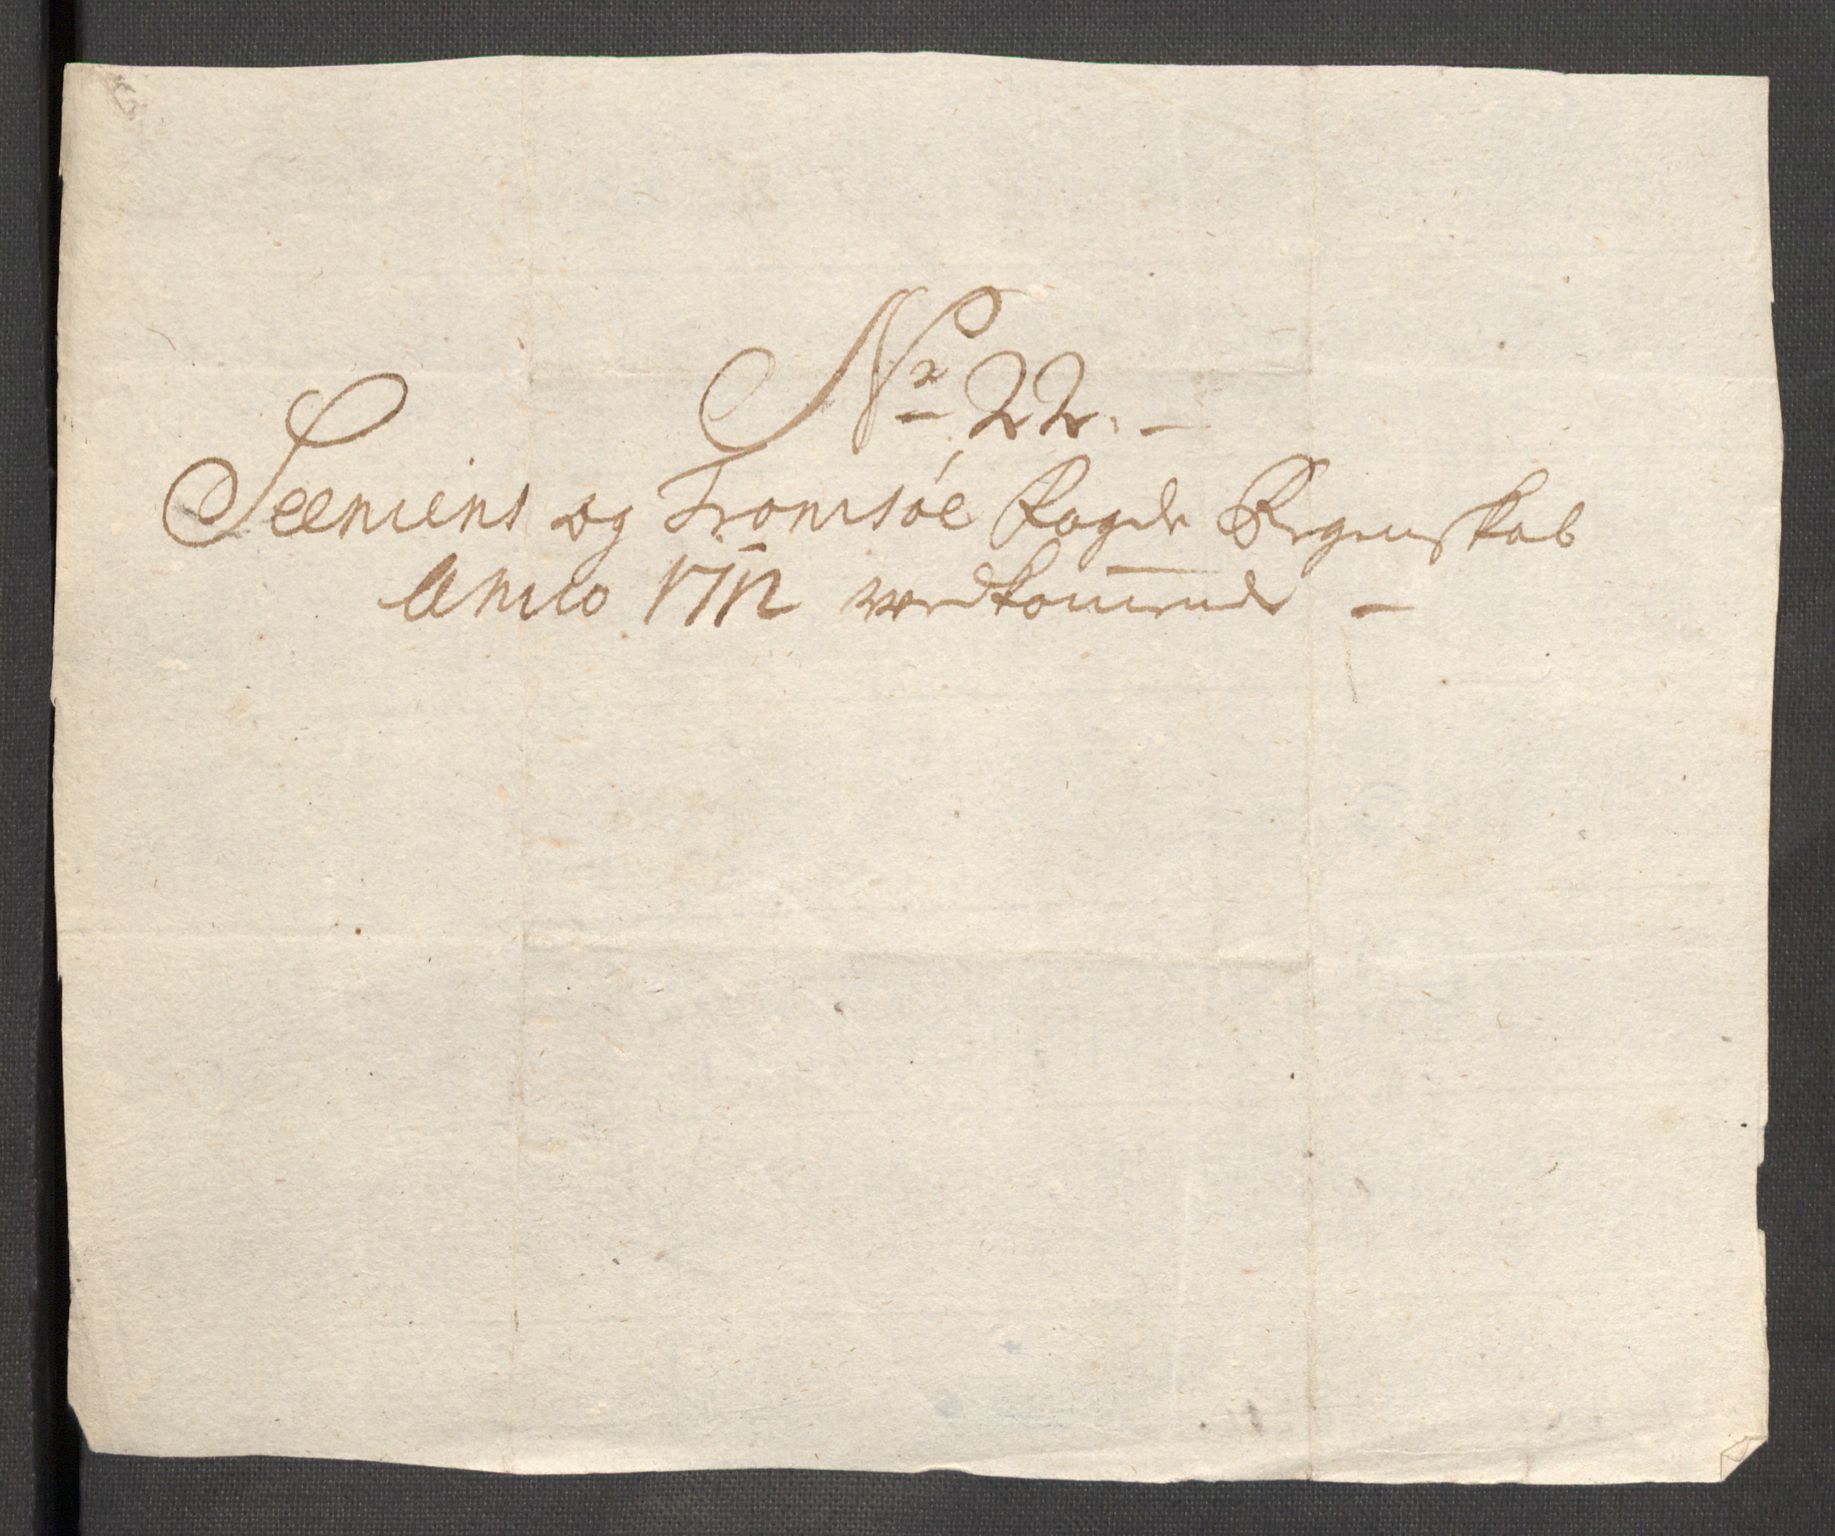 Nr 22. -
Seeniens og Tromsöe Fogde Regenskab
Anno 1712 vedkommende -